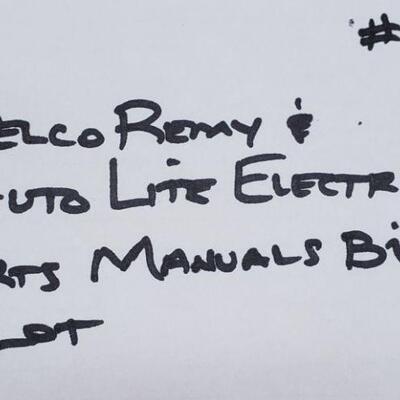 #
ELCO REMY &
UTO LITE ELECTR
RTS MANUALS BI
LOT